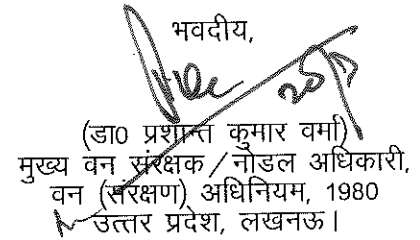 भवदीय,
(डा0 प्रशान्त कुमार वर्मा)
मुख्य वन संरक्षक/नोडल अधिकारी,
वन (संरक्षण) अधिनियम, 1980
उत्तर प्रदेश, लखनऊ।